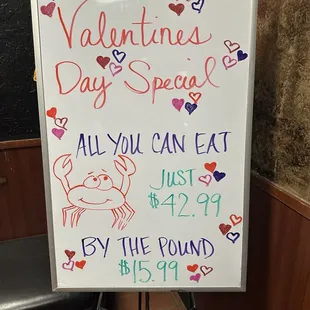 Valentines
Day Special
ALL YOU CAN EAT
JUST
$42.99
BY THE POUND
$15.99